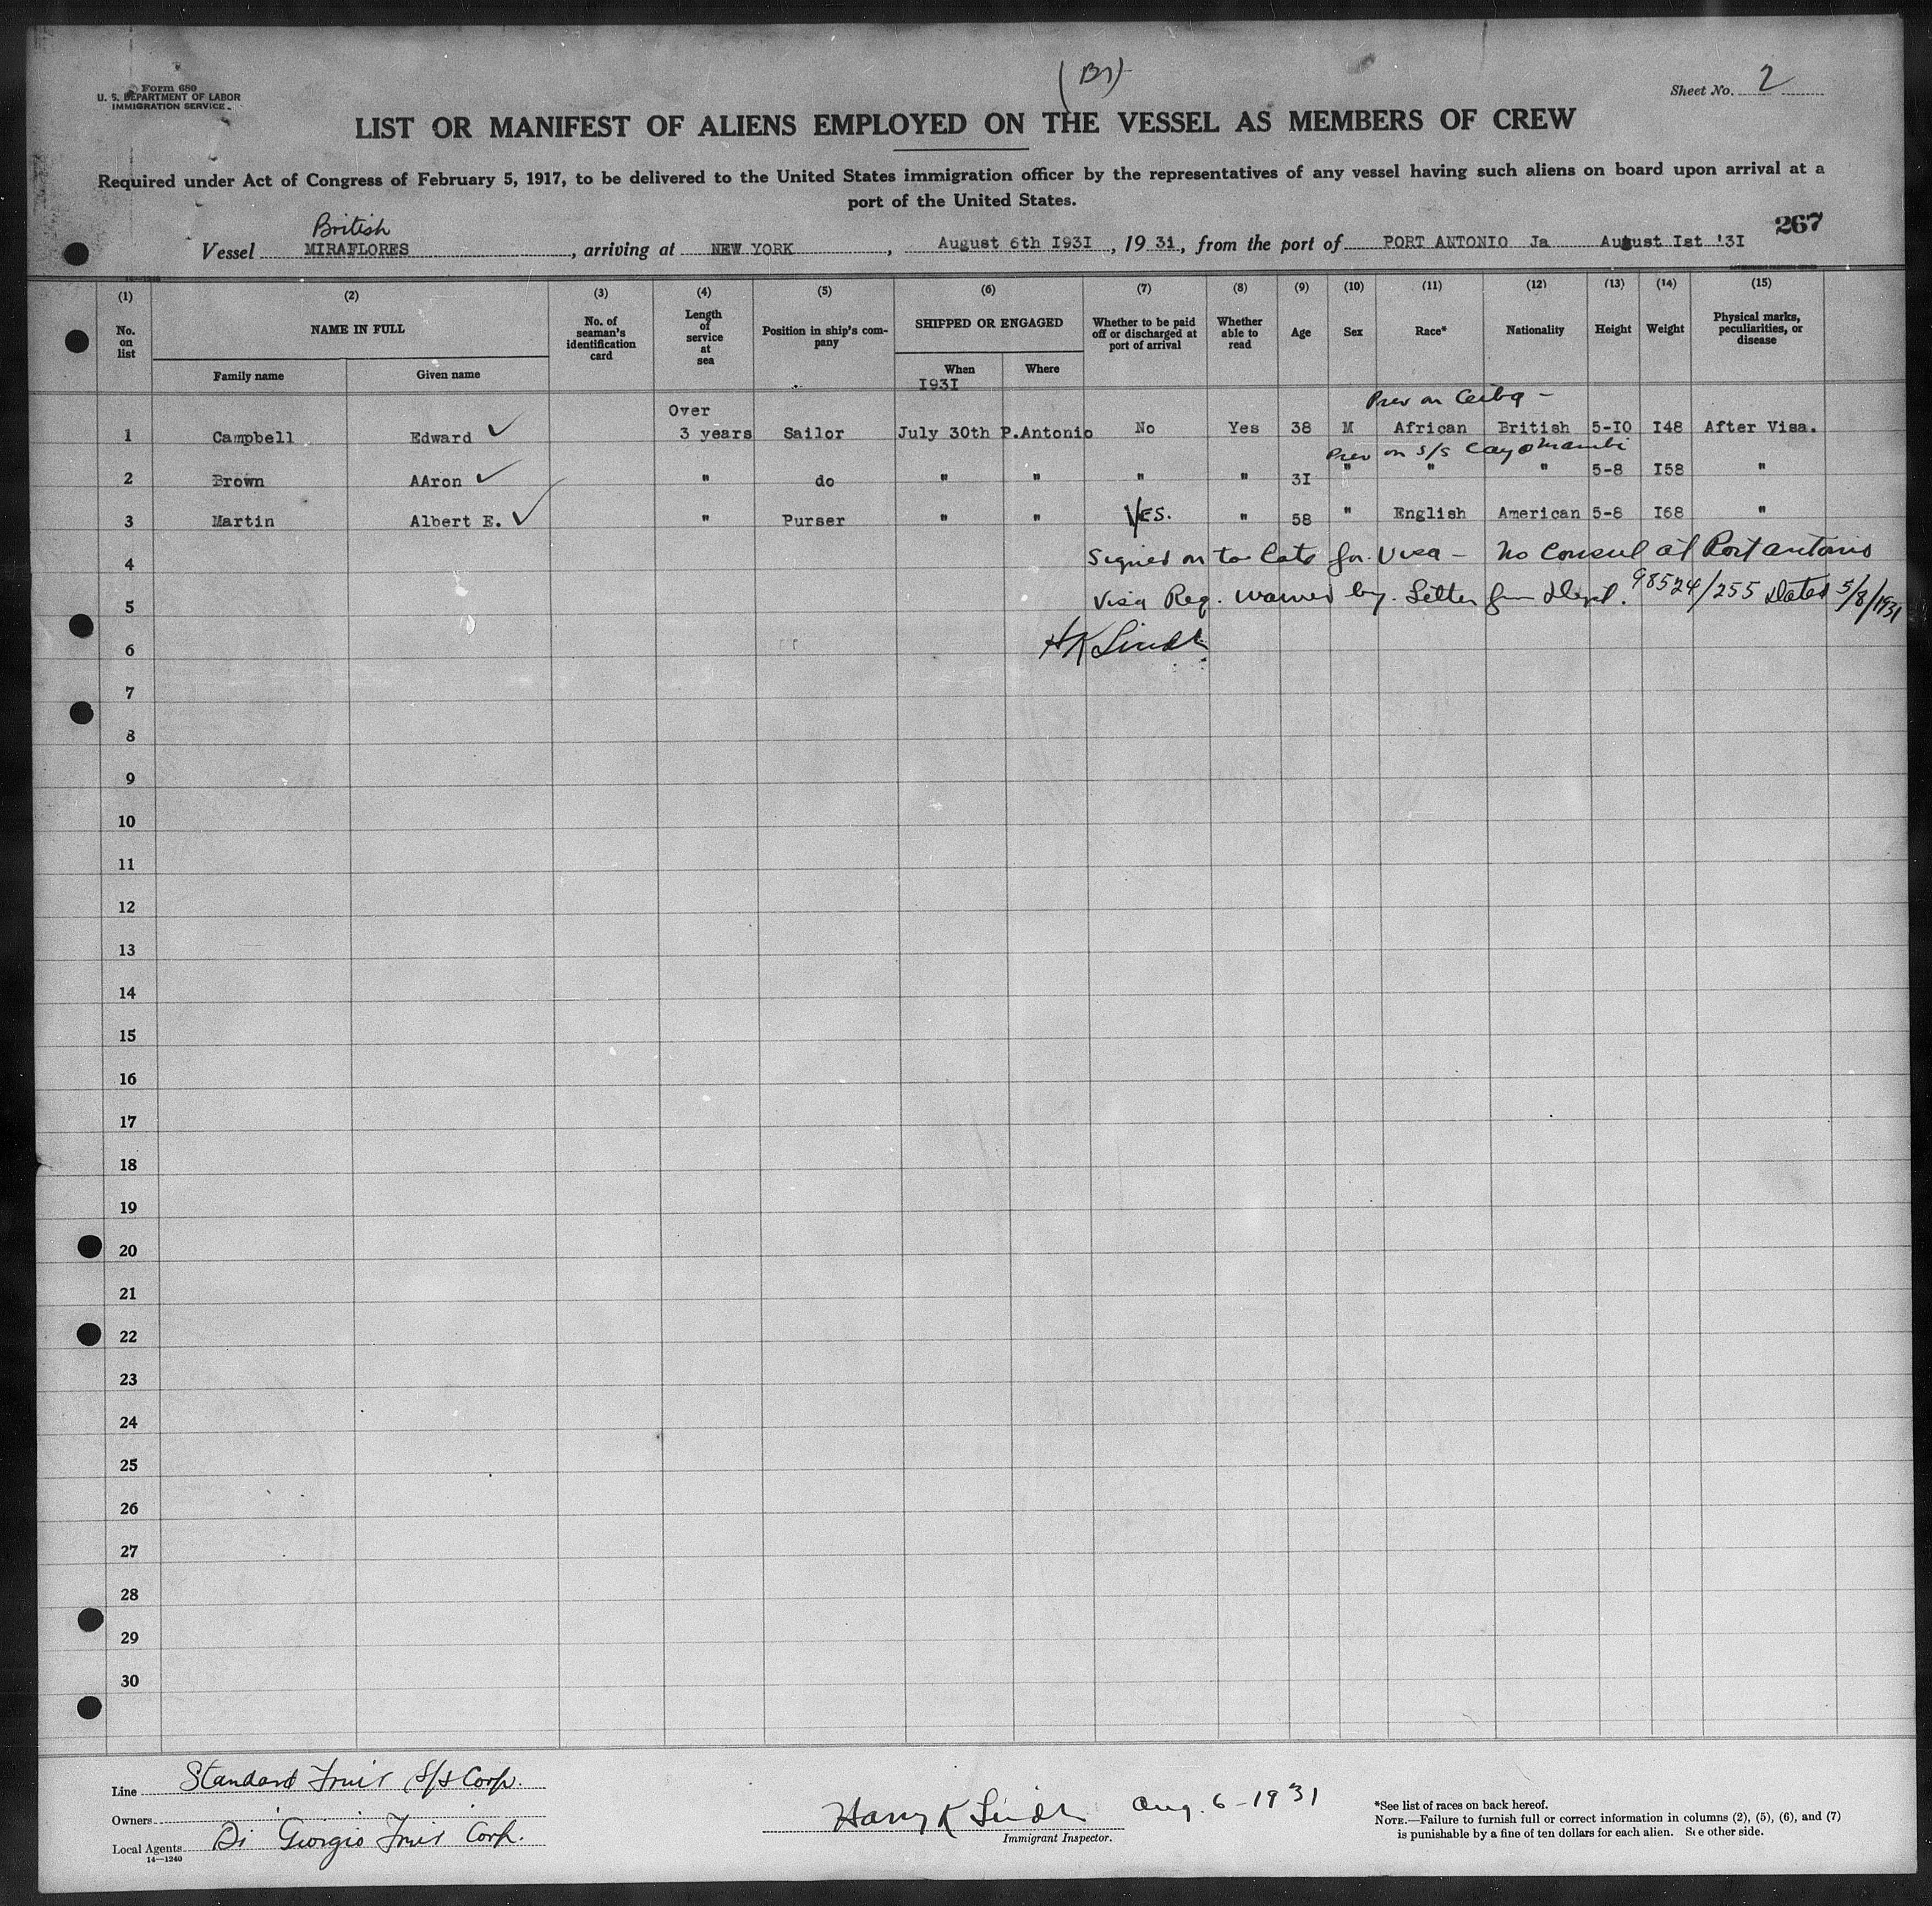 (Br)
Form 680
U. S. DEPARTMENT OF LABOR
IMMIGRATION SERVICE
Sheet No. 2
LIST OR MANIFEST OF ALIENS EMPLOYED ON THE VESSEL AS MEMBERS OF CREW
Required under Act of Congress of February 5, 1917, to be delivered to the United States immigration officer by the representatives of any vessel having such aliens on board upon arrival at a
port of the United States.
267
British
Vessel MIRAFLORES, arriving at NEW YORK, August 6th I93I, 1931, from the port of PORT ANTONIO Ja August Ist '3I
(1) (2) (3) (4) (5) (6) (7) (8) (9) (10) (11) (12) (13) (14) (15)
No. on list NAME IN FULL No. of seaman's identification card Length of service at sea Position in ship's company SHIPPED OR ENGAGED Whether to be paid off or discharged at port of arrival Whether able to read Age Sex Race* Nationality Height Weight Physical marks, peculiarities, or disease
Family name Given name When Where
I93I
Prev on Ceiba -
1 Campbell Edward ✓ Over 3 years Sailor July 30th P.Antonio No Yes 38 M African British 5-I0 I48 After Visa.
Prev on S/S Cayo Mambi
2 Brown AAron ✓ " do " " " " 3I " " " 5-8 I58 "
3 Martin Albert E. ✓ " Purser " " YES. " 58 " English American 5-8 I68 "
4 Signed on to late for Visa - No Consul at Port Antonio
5 Visa Req. waived by. Letter from Dept. 98524/255 Dated 5/8/1931
6 HK Lindh
7
8
9
10
11
12
13
14
15
16
17
18
19
20
21
22
23
24
25
26
27
28
29
30
Line Standard Fruit S/S Corp.
Owners
Local Agents Di Giorgio Fruit Corp.
14—1240
Harry K Lindh Aug. 6 - 1931
Immigrant Inspector.
*See list of races on back hereof.
NOTE.—Failure to furnish full or correct information in columns (2), (5), (6), and (7)
is punishable by a fine of ten dollars for each alien. See other side.